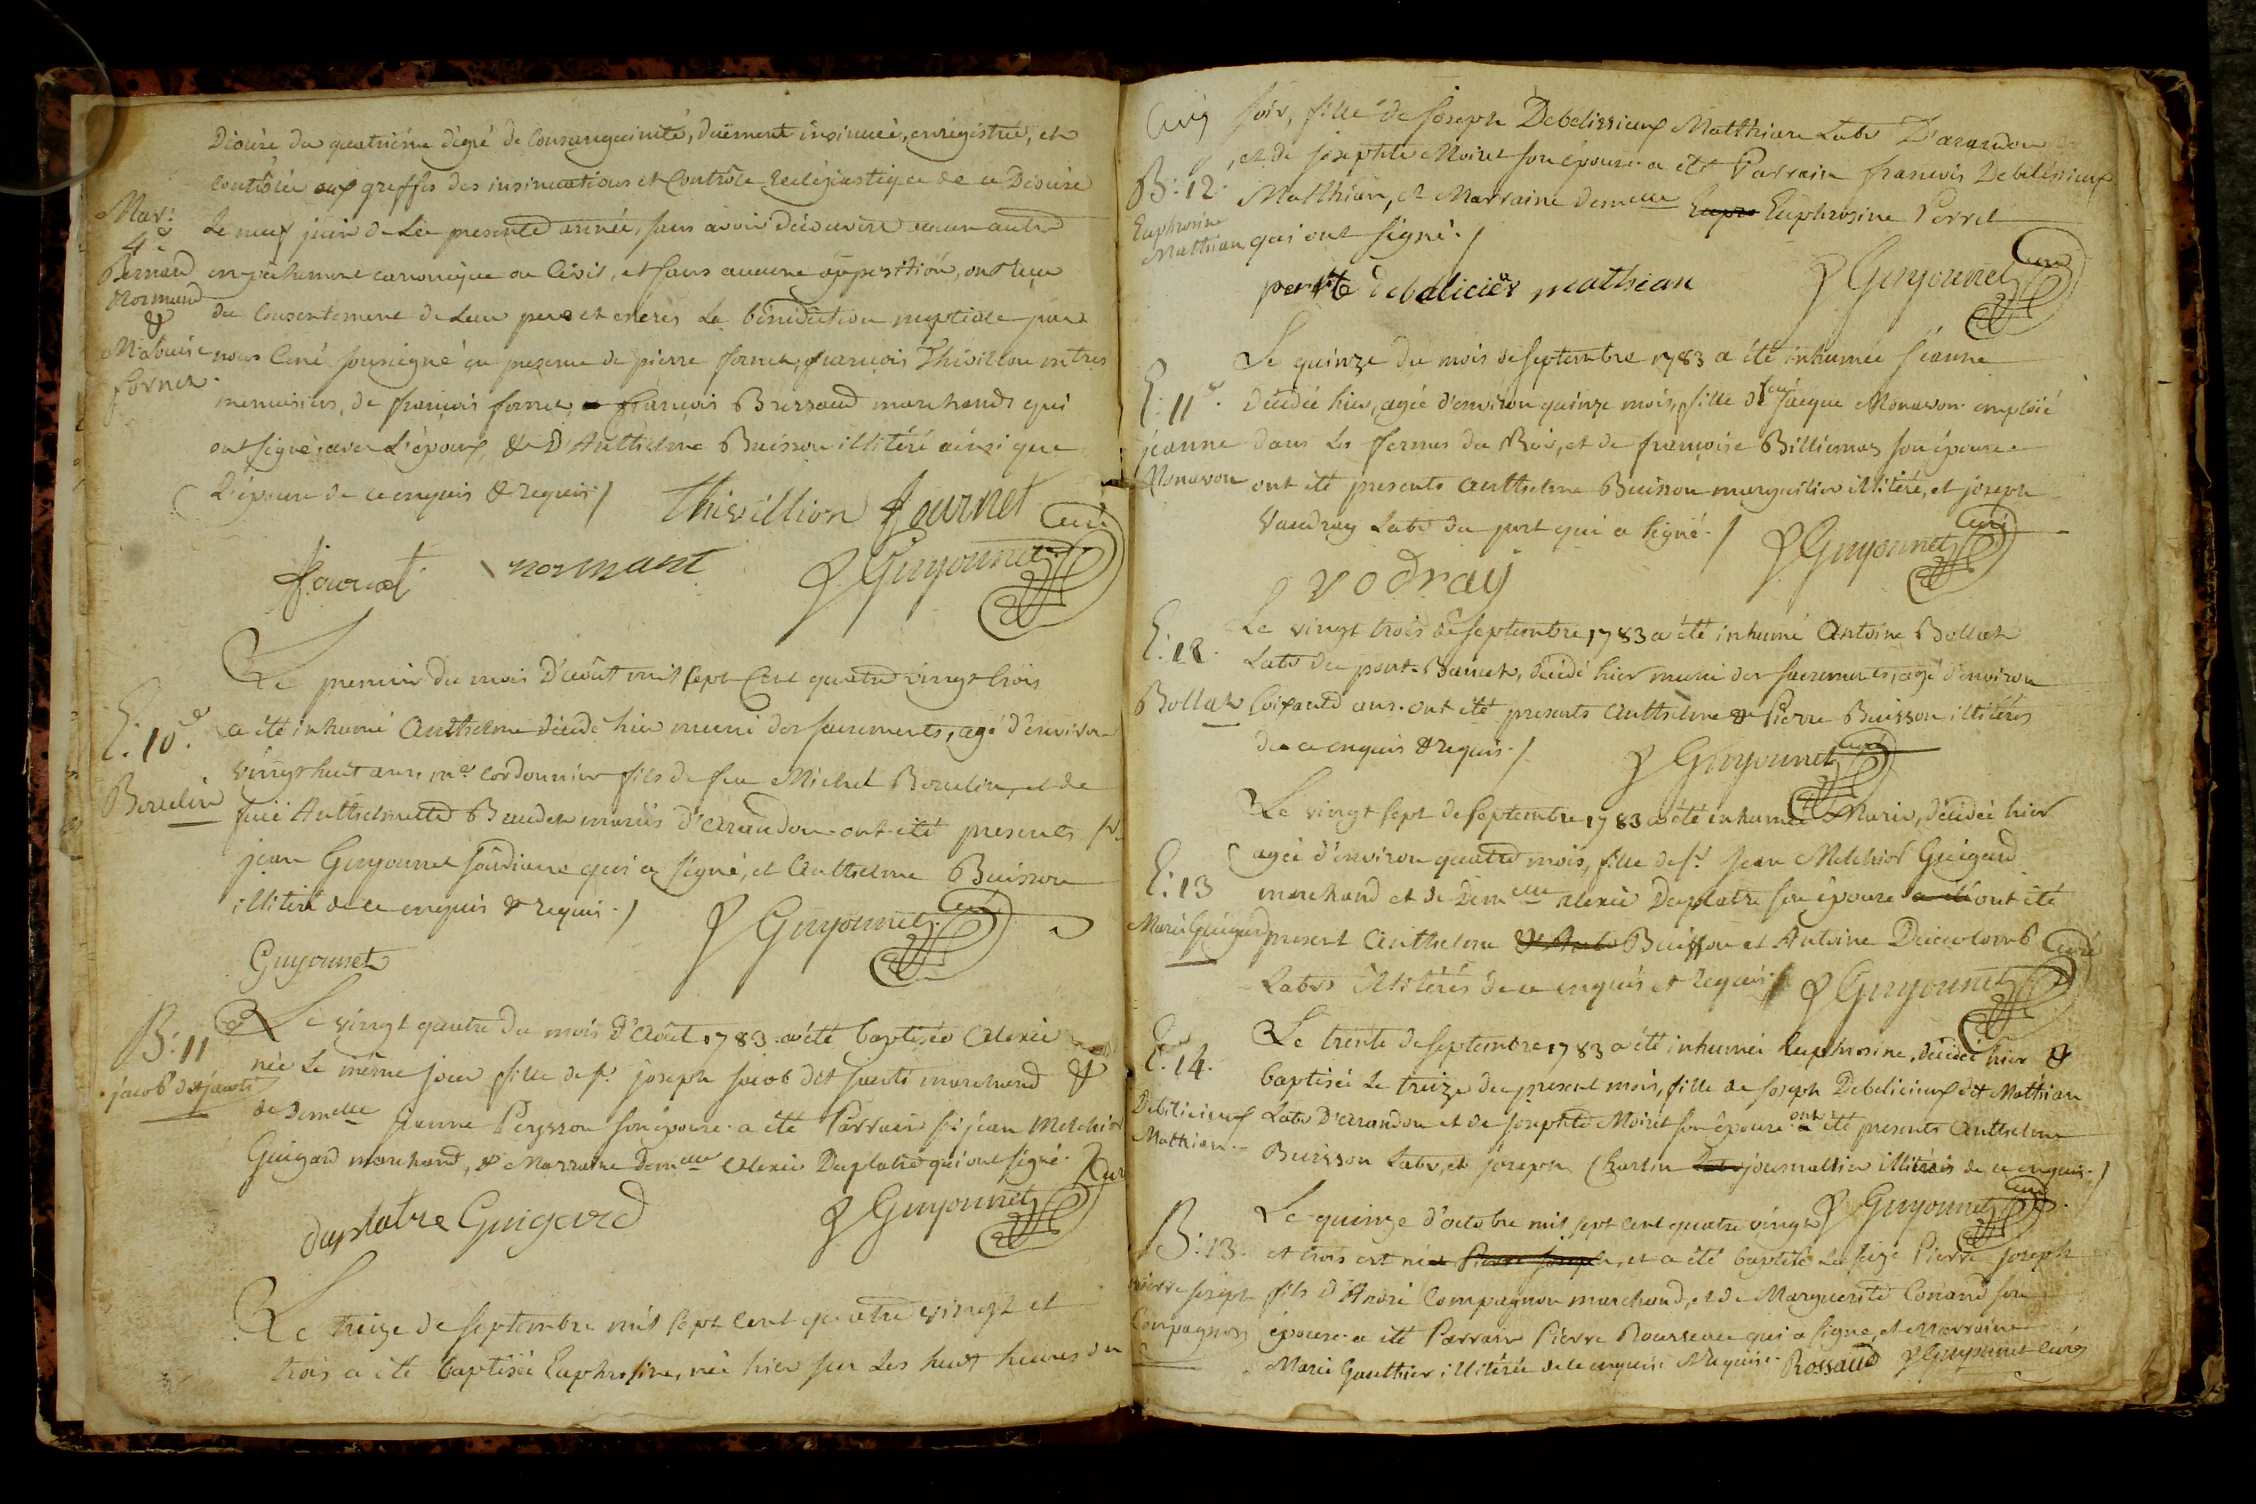 Diocèse du quatrième dégré de Consanguinité, duëment insinuée, enrégistrée, et
contrôlée aux greffes des insinuations et Contrôle Ecclésiastique de ce Diocèse
Mar: 4e
Bernard
Normand
&
Fornet
Le neuf juin de La presente année, sans avoir découvert aucun autre
empêchement canonique ou Civil, et sans aucune opposition, ont reçu
du Consentement de Leur pere et meres La bénédiction nuptiale par
nous Curé soussigné en presence de pierre fornet, françois Thivillon mtres
menuisiers, de françois fornet, françois Brissaud marchands qui
ont signé avec L'époux, & D'Anthelme Buisson illitéré ainsi que
L'épouse de ce enquis & requis ./
Thivillion Journet
fournet normant J Guyonnet Curé
E: 10e
Borcelin
Le premier du mois D'août mil sept Cent quatre vingt trois
a été inhumé Anthelme décédé hier muni des sacrements, agé d'environ
vingt huit ans, me cordonnier fils de feu Michel Borcelin, et de
feüe Anthelmette Baudet mariés d'arandon. ont été presents Sr
jean Guyonnet soudiacre qui a signé, et Anthelme Buisson
illitéré de ce enquis & requis ./
J Guyonnet Curé
Guyonnet
B: 11
jacob dit
Le vingt quatre du mois d'Aoùt 1783 a été baptisée Alexie
née Le même jour fille de sr joseph jacob dit marchand &
de Demelle jeanne Peysson son épouse. a été Parrain sr jean Melchior
Guigard marchand, & Marraine Demelle Alexie Duplatre qui ont signé.
duplatre Guigard J Guyonnet Curé
Le treize de septembre mil sept cent quatre vingt et
trois a été baptisée Euphrosine, née hier sur Les huit heures du
B: 12
Euphrosine
Mathian
soir, fille de Joseph Debelissieux Matthian Labr D'arandon
, et de josephte Moiret son épouse. a été Parrain françois Debelissieux
Matthian, et Marraine Demelle Euphrosine Perret
qui ont signé ./
perrete debelicieux mathian J Guyonnet Curé
E: 11e
jeanne
Monavon
Le quinze du mois de Septembre 1783 a été inhumée jeanne
décédée hier, agée d'environ quinze mois, fille de feu jacque Monavon emploié
dans Les fermes du Roi, et de françoise Billiemaz son épouse
ont été presents anthelme Buisson marguilier illitéré, et joseph
Vaudray Labr du port qui a signé ./
J Guyonnet Curé
vodray
E: 12
Bollat
Le vingt trois de septembre 1783 a été inhumé Antoine Bollat
Labr du pont , décédé hier muni des sacrements, agé d'environ
soixante ans. ont été presents Anthelme & Pierre Buisson illitérés
de ce enquis & requis ./
J Guyonnet Curé
E: 13
Marie Guigard
Le vingt sept de septembre 1783 a été inhumée Marie, décédée hier
agée d'environ quatre mois, fille de sr jean Melchior Guigard
marchand et de Demelle Alexie Duplatre son épouse ont été
present Anthelme Buisson et Antoine Ducolomb
Labrs illitérés de ce enquis et requis ./ J Guyonnet Curé
E: 14.
Debelicieux
Mathian
Le trente de septembre 1783 a été inhumée Euphrosine, décédée hier &
baptisée Le treize du present mois, fille de joseph Debelicieux dit Mathian
Labr D'arandon et de josephte Moiret son épouse. ont été presents Anthelme
Buisson Labr, et joseph Charlin journallier illitérés de ce enquis ./
J Guyonnet Curé
B: 13.
pierre joseph
Compagnon
Le quinze d'octobre mil sept cent quatre vingt
et trois est né, et a été baptisé Le seize Pierre joseph
fils d'André Compagnon marchand, et de Marguerite Conand son
épouse. a été Parrain Pierre Rousseau qui a signé, et Marraine
Marie Gauthier illitérée de ce enquise & requise. Rossaud J Guyonnet Curé